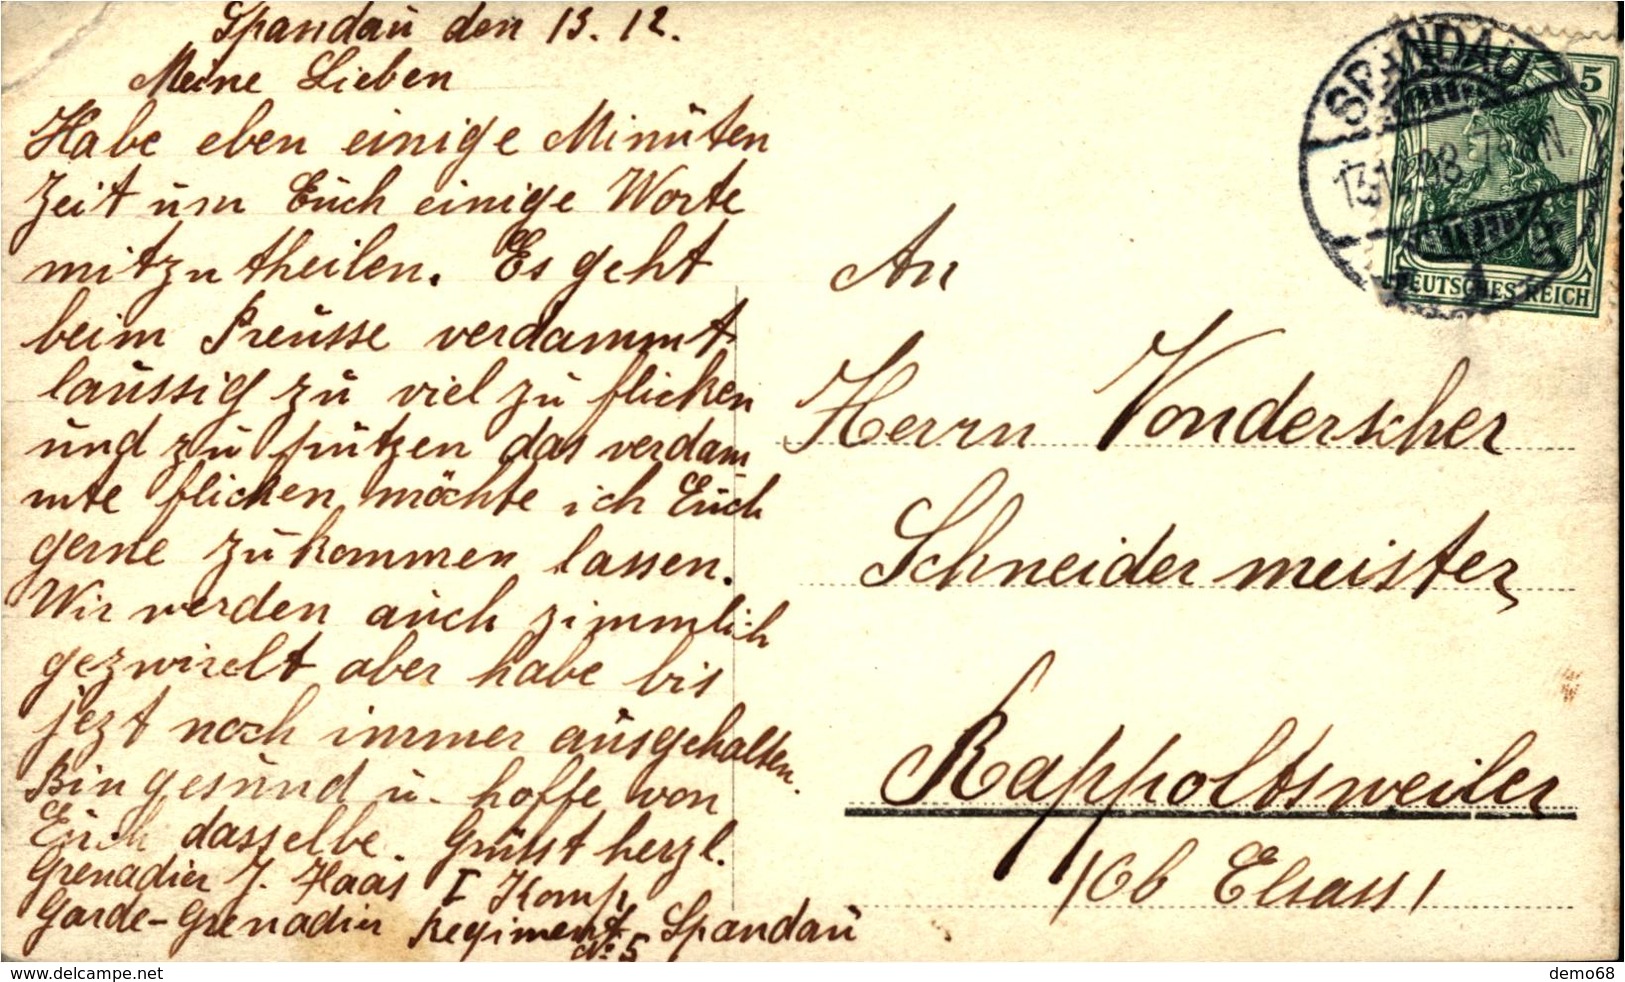 Spandau den 13. 12.
Meine Lieben
Habe eben einige Minuten
Zeit um Euch einige Worte
mitzutheilen. Es geht
beim Preusse verdammt
laussig zu viel zu flicken
und zu putzen das verdam
mte flicken möchte ich Euch
gerne zukommen lassen.
Wir werden auch zimmlich
gezwirelt aber habe bis
jezt noch immer ausgehalten.
Bin gesund u. hoffe von
Euch dasselbe. Grüsst herzl.
Grenadier J. Haas I Komp,
Garde-Grenadier Regiment Spandau
No 5
An
Herrn Vonderscher
Schneidermeister,
Rappoltsweiler
/Ob Elsass/
SPANDAU
13.12.08. 7-8 N.
1
5
DEUTSCHES REICH
www.delcampe.net
demo68